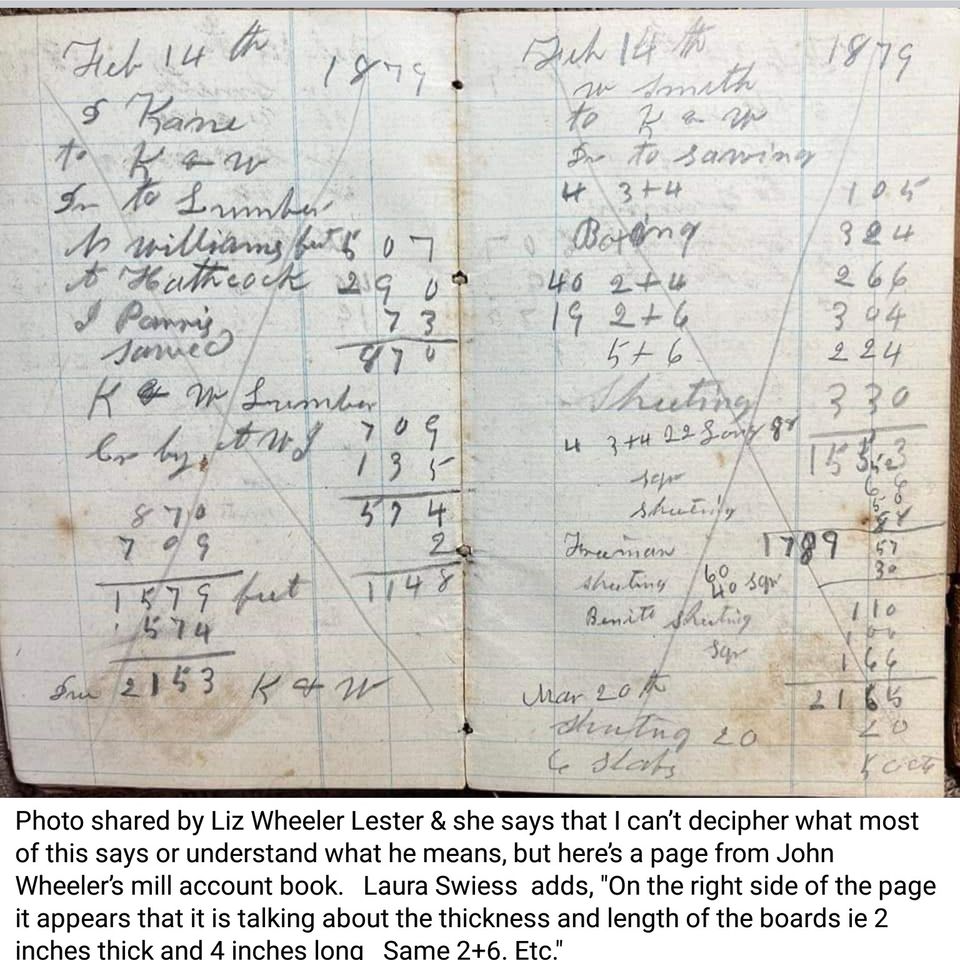 Feb 14 th 1879
J Kane
to K & W
Dr to Lumber
M Williams feet 507
A Hathcock 290
J Parris 73
Sawed 870
K & W Lumber
Cr by A W J 709
135
870 574
709 2
1579 feet 1148
574
Due 2153 K & W
Feb 14 th 1879
W Smith
to K & W
Dr to Sawing
4 3+4 105
Boxing 324
40 2+4 266
19 2+6 304
5+6 224
Sheeting 330
4 3+4 22 Long 88
1553
sqr
sheeting
Freeman 1789 57
30
sheeting 60
40 sqr
110
Benitt sheeting
100
Sqr 166
2165
Mar 20 th
sheeting 20 20
6 Slabs 5 cts
Photo shared by Liz Wheeler Lester & she says that I can’t decipher what most
of this says or understand what he means, but here’s a page from John
Wheeler’s mill account book. Laura Swiess adds, "On the right side of the page
it appears that it is talking about the thickness and length of the boards ie 2
inches thick and 4 inches long Same 2+6. Etc."